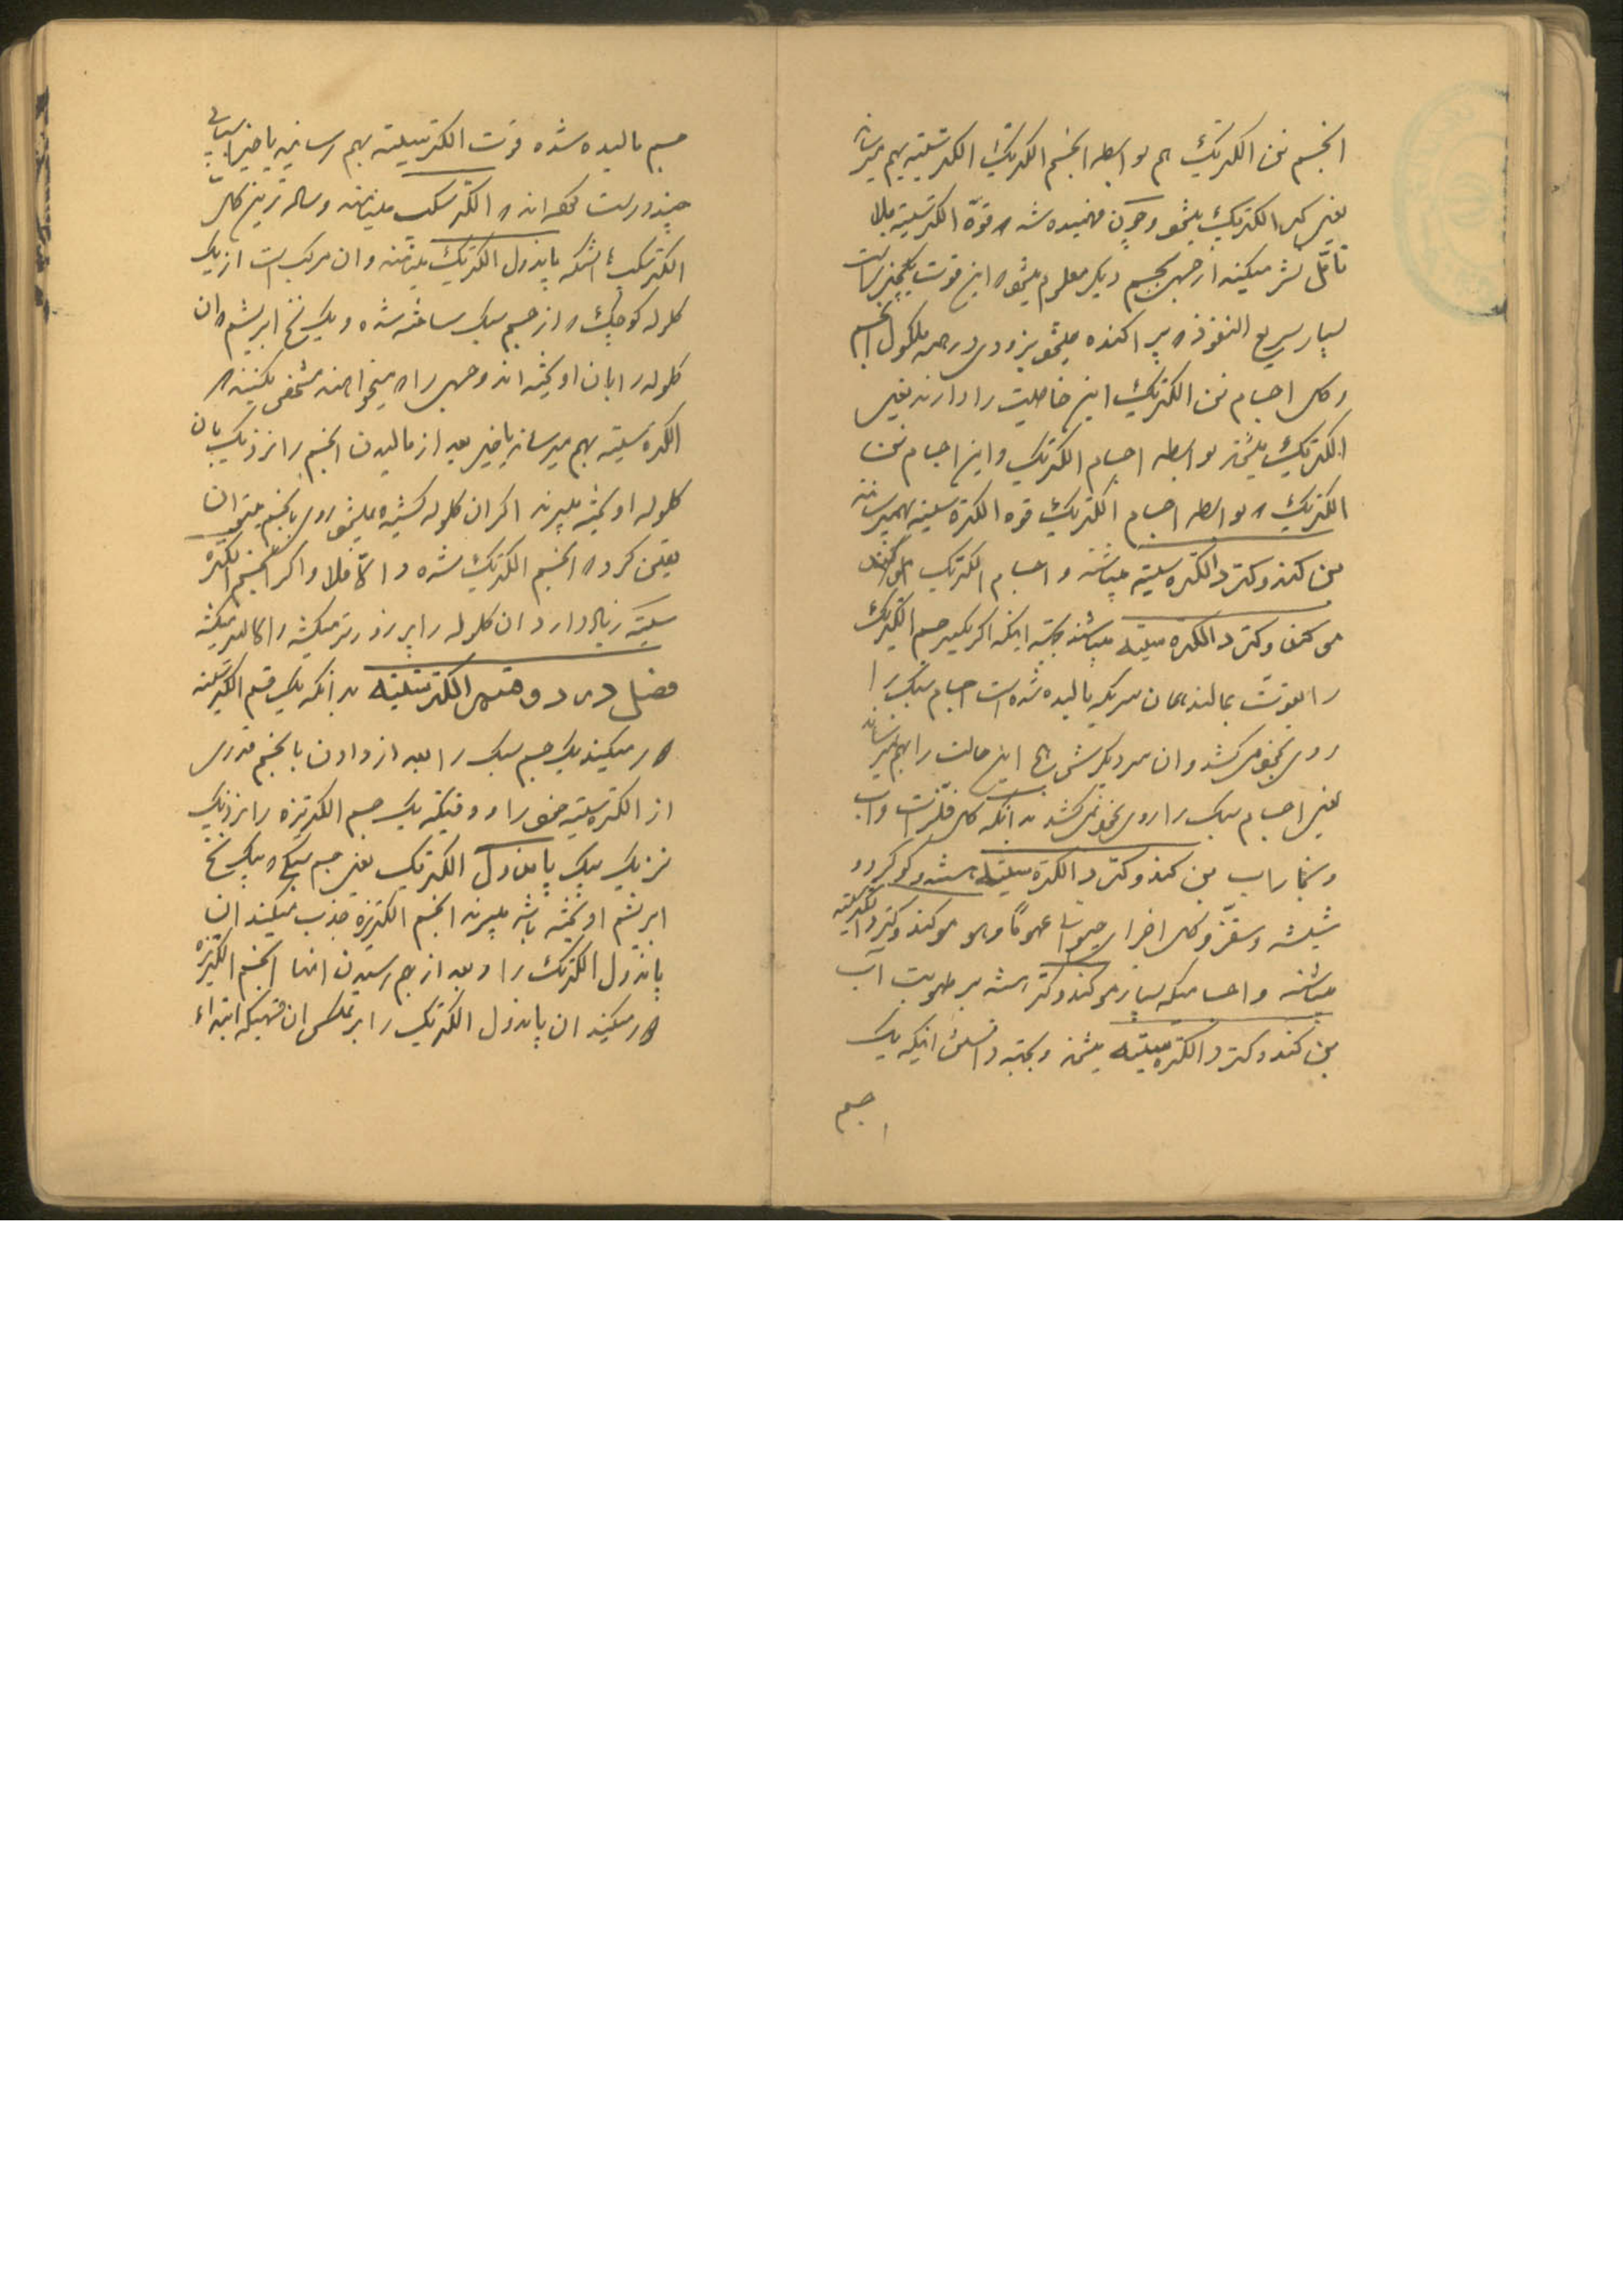 انجسم نن الکتریک هم بواسطه انجسم الکتریک الکتریسیته بهم میرساند
یعنی که الکتریک میشود و چون فهمیده شد که قوّه الکتریسیته بلا
تأمّل نشر میکند از جسمی بجسم دیگر معلوم میشود که این قوت یکچیزیست
بسیار سریع النفوذ که پراکنده میشود بزودی در همه ملکول انجسم
و کل اجسام نن الکتریک این خاصیت را دارند یعنی
الکتریک میشوند بواسطه اجسام الکتریک و این اجسام نن
الکتریک که بواسطه اجسام الکتریک قوه الکتره سیته بهم میرسانند
بن کندوکتر د الکتره سیته میباشند و اجسام الکتریک
مو کندوکتر د الکتره سیته میباشند بجهته اینکه اگر یکسر جسم الکتریک
را بقوت بمالند همان سریکه مالیده شده است اجسام سبک را
روی بخود میکشد و ان سر دیگرش این حالت را بهم نمیرساند
یعنی اجسام سبک را روی بخود نمیکشد بدانکه کل فلزات و آب
و بخار آب بن کندوکتر د الکتره سیته هستند و گوگرد و
شیشه و سقز و کل اجزای حیوانی عموماً مو کندوکتر د الکتریسیته
میباشند و اجسامیکه بسیار مو کندوکتر هستند برطوبت آب
بن کندوکتر د الکتره سیته میشوند و بجهته دانستن اینکه یک
جسم
جسم مالیده شده قوت الکتریسیته بهم رسانیده یا خیر اسبابی
چند درست کرده اند که الکترسکپ مینامند و ساده ترین کل
الکترسکپ آنستکه پاندول الکتریک مینامند و ان مرکب است از یک
گلوله کوچک که از جسم سبک ساخته شده و یک نخ ابریشم که ان
گلوله را بان اویخته اند و جسمی را که میخواهند مشخص بکنند که
الکتره سیته بهم میرساند یا خیر بعد از مالیدن انجسم را نزدیک بان
گلوله اویخته میبرند اگر ان گلوله کشیده میشود روی بانجسم میتوان
یقین کرد که انجسم الکتریک شده و الّا فلا و اگر انجسم الکتره
سیته زیاد دارد ان گلوله را پر زورتر میکشد والا کمتر میکشد
فصل در دو قسم الکتریسیته بدانکه یک قسم الکتریسیته
دور میکند یک جسم سبک را بعد از دادن بانجسم قدری
از الکتره سیته خود را و وقتیکه یک جسم الکتریزه را نزدیک
نزدیک بیک پاندول الکتریک یعنی جسم سبکی که بیک نخ
ابریشم اویخته باشد میبرند انجسم الکتریزه جذب میکند ان
پاندول الکتریک را و بعد از بهم رسیدن انها انجسم الکتریزه
دور میکند ان پاندول الکتریک را برعکس ان قسمیکه ابتداء